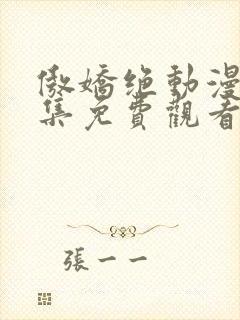 傲嬌絶動漫
集免費觀看
張一一